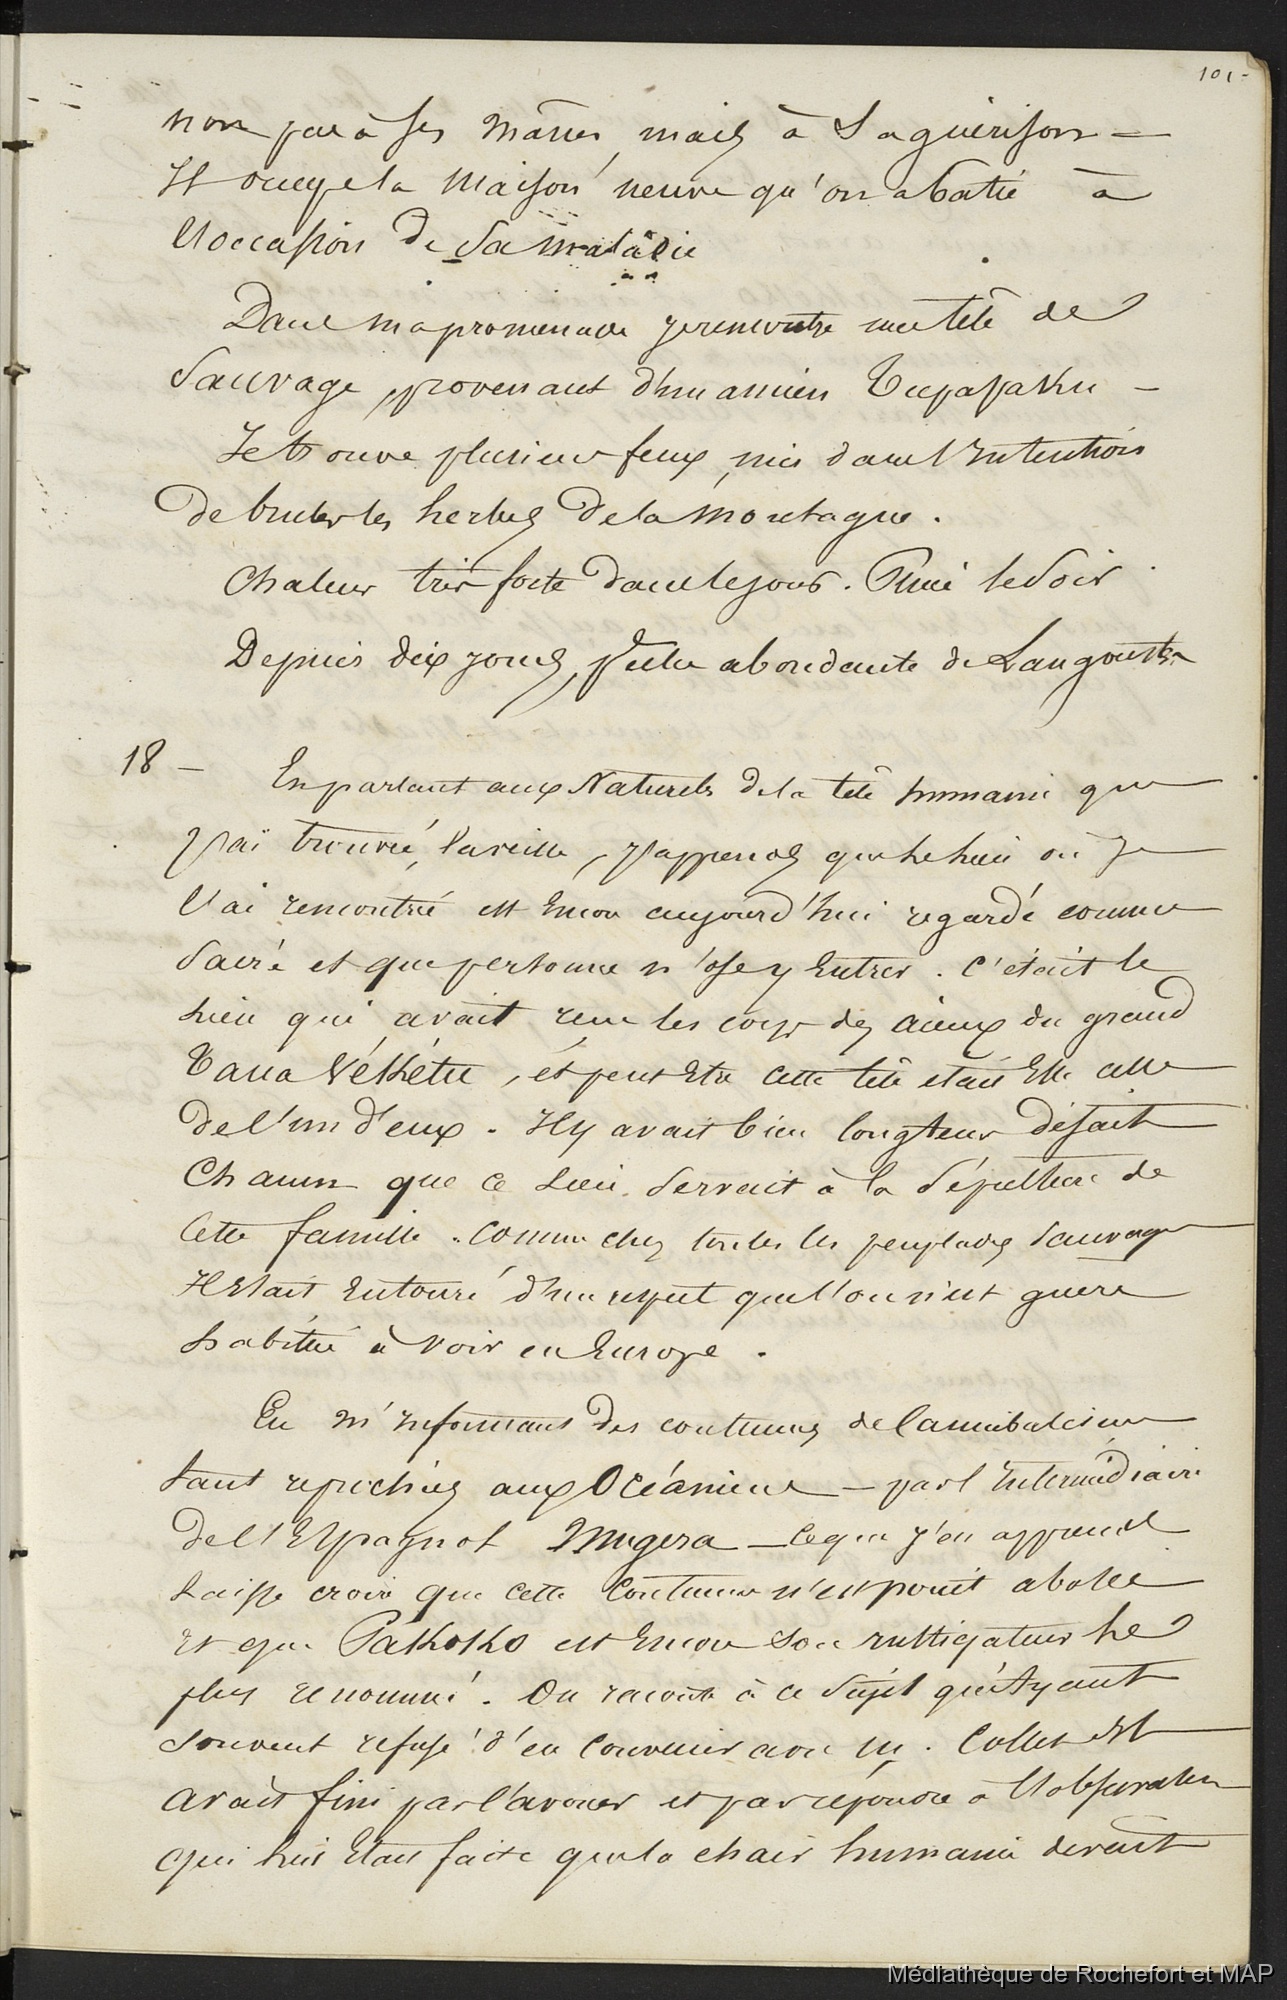 101-
non pas à ses mânes, mais à sa guérison —
Il occupe la maison neuve qu'on a batie à
l'occasion de sa maladie
Dans ma promenade je rencontre une tête de
Sauvage, provenant d'un ancien Tupapaku —
Je trouve plusieurs feux, mis dans l'intention
de bruler les herbes de la montagne.
Chaleur très forte dans le jour. Pluie le Soir.
Depuis dix jours, pêche abondante de Langoustes
18 — En parlant aux Naturels de la tête humaine que
j'ai trouvée la veille, j'apprends que le lieu où je
l'ai rencontrée est encore aujourd'hui regardé comme
Sacré et que personne n'ose y entrer. C'était le
lieu qui avait reçu les corps des aieux du grand
Vékétu, et peut être cette tête était elle celle
de l'un d'eux. Il y avait bien longtems disait
Chacun que ce Lieu servait à la Sépulture de
cette famille. Comme chez toutes les peuplades Sauvages
Il était entouré d'un respect que l'on n'est guère
habitué à voir en Europe.
En m'informant des coutumes de Cannibalisme
tant reprochées aux Océaniens — par l'intermédiaire
de l'Espagnol Mugera — ce que j'en apprends
Laisse croire que cette Coutume n'est point abolie
et que Pakoko est encore son instigateur le
plus renommé. On raconte à ce Sujet qu'ayant
Souvent refusé d'en convenir avec M. Collet il
avait fini par l'avouer et par répondre à l'observation
qui lui était faite que la chair humaine devait